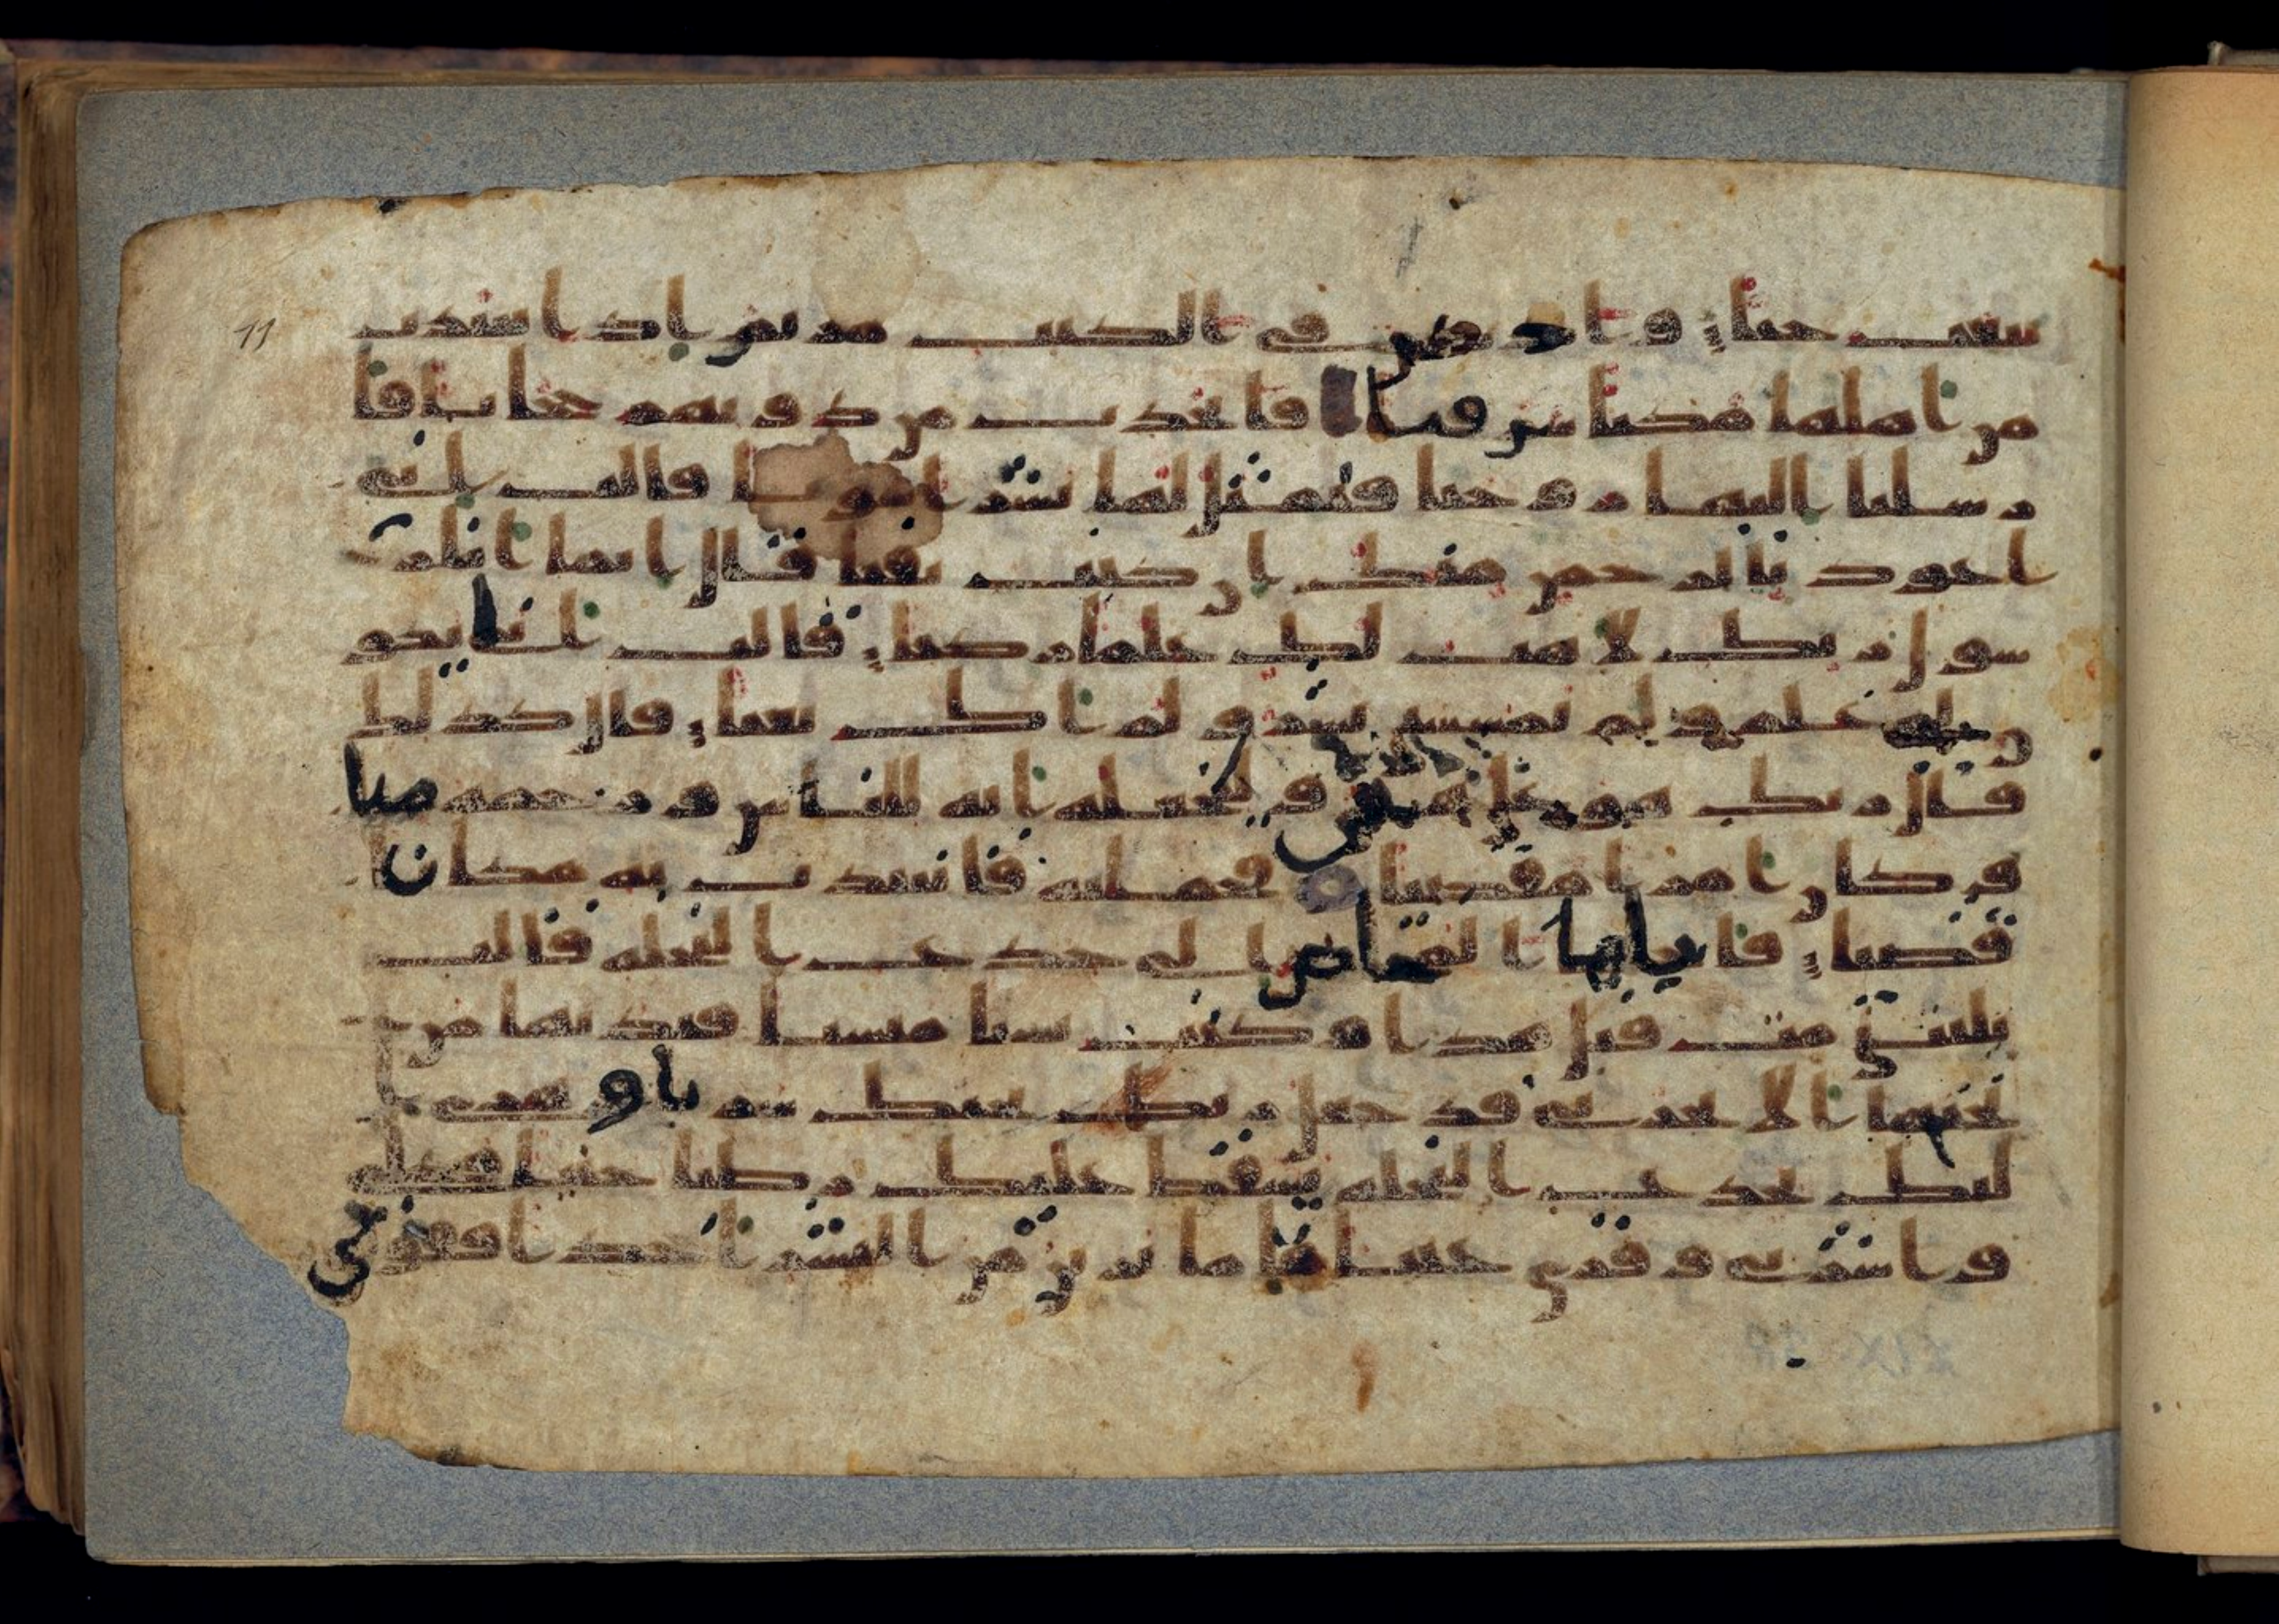 يبعث حيا واذكر في الكتب مريم اذ انتبذت
11
من اهلها مكنا شرقيا فاتخذت من دونهم حجابا فا
رسلنا اليها روحنا فتمثل لها بشرا سويا قالت اني
اعوذ بالرحمن منك ان كنت تقيا قال انما انا ر
سول ربك لاهب لك غلما زكيا قالت انى يكو
ن لي غلم ولم يمسسني بشر ولم اك بغيا قال كذلك
قال ربك هو علي هين ولنجعله اية للناس ورحمة منا
وكان امرا مقضيا فحملته فانتبذت به مكانا
قصيا فاجاها المخاض الى جذع النخلة قالت
يليتني مت قبل هذا وكنت نسيا منسيا فنديها من
تحتها الا تحزني قد جعل ربك تحتك سريا وهزي ا
ليك بجذع النخلة تسقط عليك رطبا جنيا فكلي
واشربي وقري عينا فاما ترين من البشر احدا فقولي